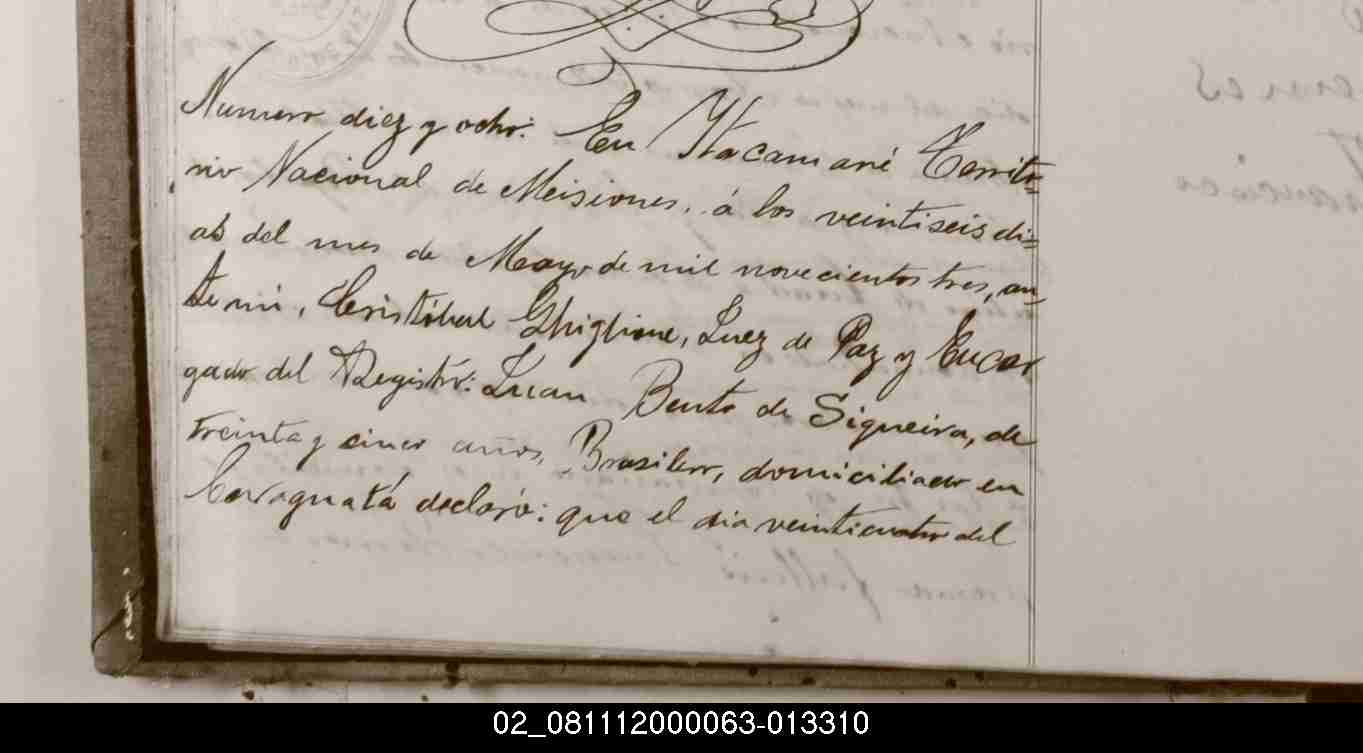 Numero diez y ocho: En Itacaruaré Territo-
rio Nacional de Meisiones, á los veintiseis di-
as del mes de Mayo de mil novecientos tres, an-
te mi, Cristóbal Ghiglione, Juez de Paz y Encar
gado del Registro: Juan Bento de Siqueira, de
treinta y cinco años, Brasilero, domiciliado en
Caraguatá declaró: que el dia veinticuatro del
02_081112000063-013310